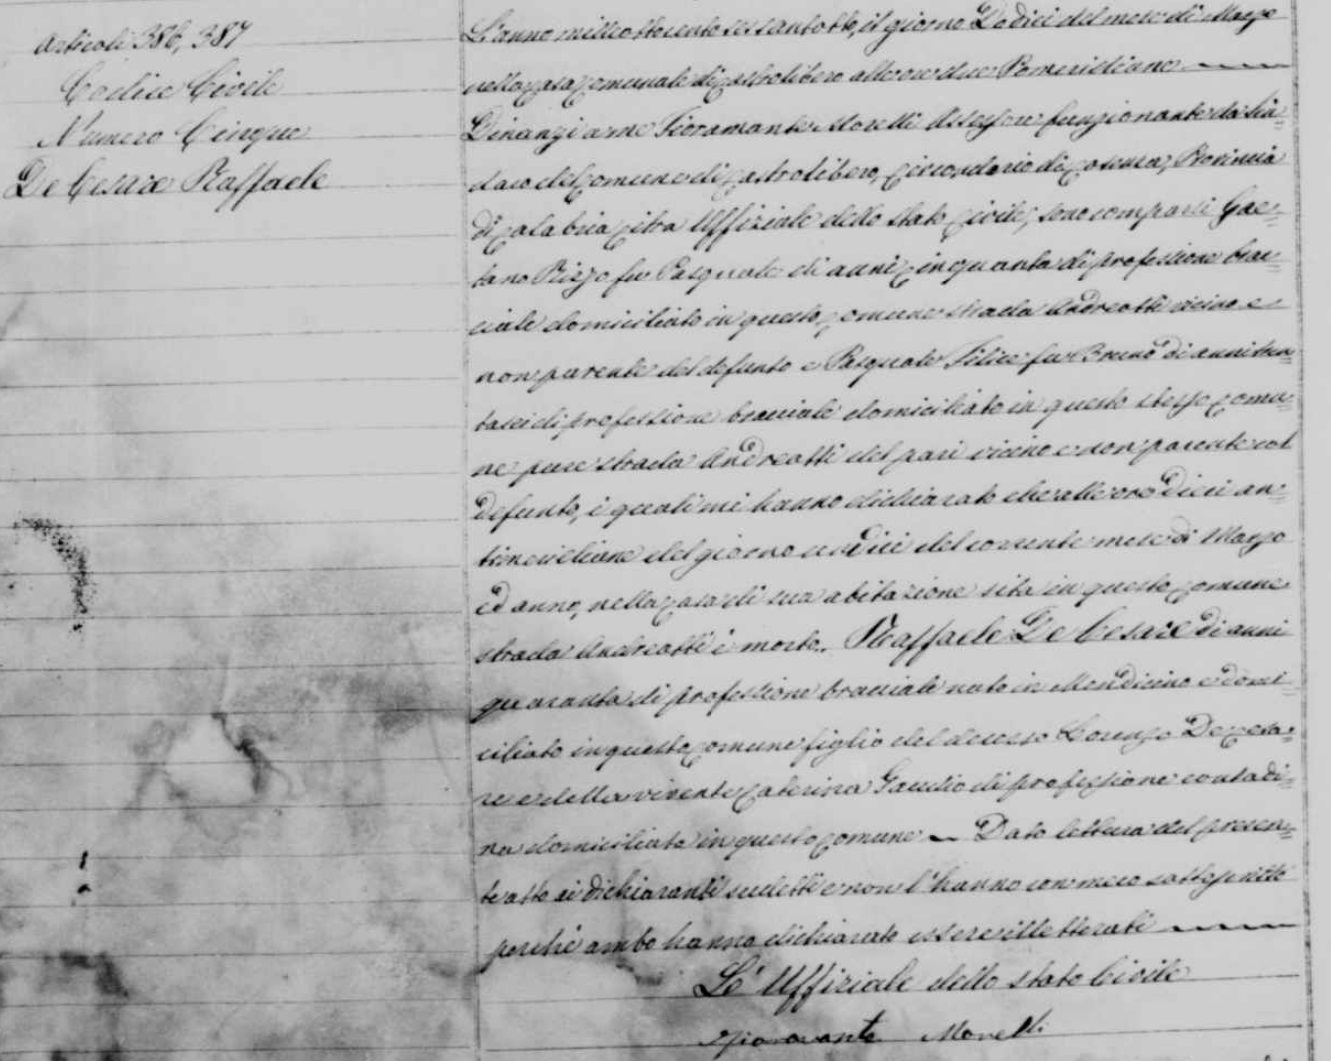 Articoli 386, 387
Codice Civile
Numero Cinque
De Cesare Raffaele
L'anno milleottocentosessantotto, il giorno Dodici del mese di Marzo
nella casa Comunale di Castrolibero alle ore due Pomeridiane
Dinanzi a me Fioramante Morelli Assessore funzionante da Sin=
daco del Comune di Castrolibero, Circondario di Cosenza, Provincia
di Calabria Citra Uffiziale dello Stato Civile, sono comparsi Gae=
tano Rizzo fu Pasquale di anni cinquanta di professione brac=
ciale domiciliato in questo Comune strada Andreotti vicino e
non parente del defunto e Pasquale Filice fu Bruno di anni tren
tasei di professione bracciale domiciliato in questo stesso Comu=
ne pure strada Andreotti del pari vicino e non parente col
defunto, i quali mi hanno dichiarato che alle ore dieci an=
timeridiane del giorno undici del corrente mese di Marzo
ed anno, nella casa di sua abitazione sita in questo Comune
strada Andreotti è morto, Raffaele De Cesare di anni
quaranta di professione bracciale nato in Mendicino e domi=
ciliato in questo Comune figlio del decesso Lorenzo De Cesa=
re e della vivente Caterina Gaudio di professione contadi=
na domiciliata in questo Comune Dato lettura del presen=
te atto ai dichiaranti sudetti e non l'hanno con meco sottoscritto
perché ambo hanno dichiarato essere illetterati
L'Uffiziale dello Stato Civile
Morelli